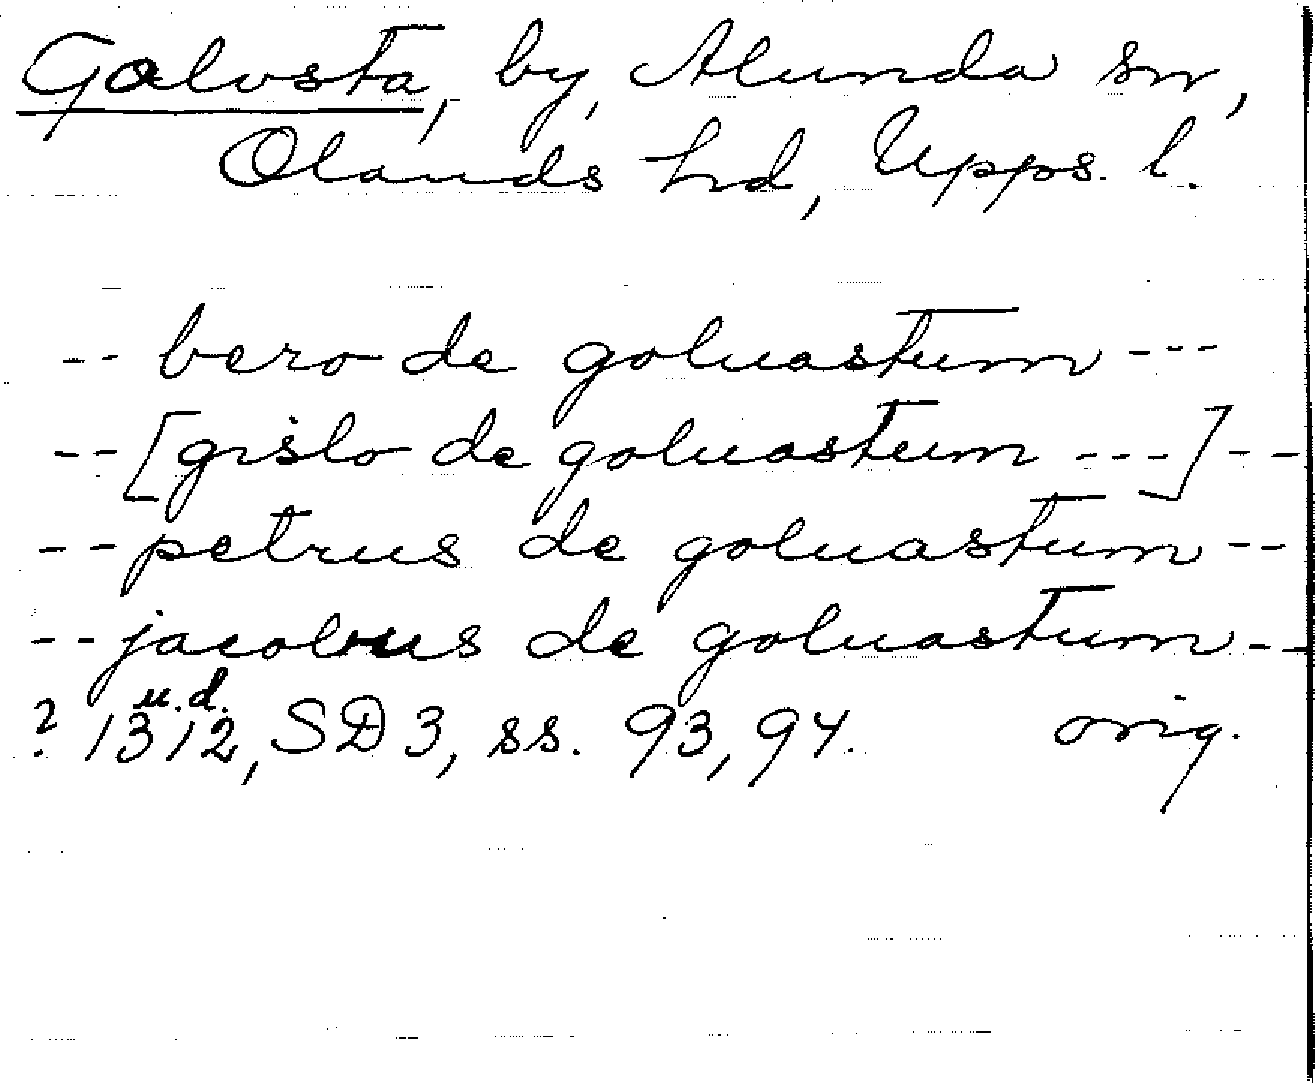 Golvsta, by, Alunda sn,
Olands hd, Upps. l.
-- bero de goluastum ---
-- [gislo de goluastum ---] --
-- petrus de goluastum --
-- jacobus de goluastum --
u.d.
? 1312, SD 3, ss. 93, 94. orig.